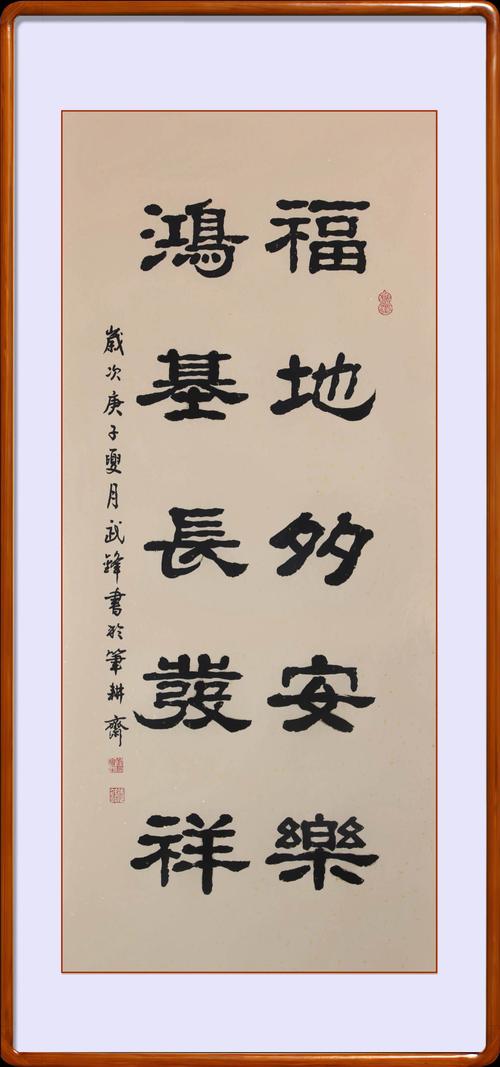 福地多安樂
鴻基長發祥
歲次庚子夏月武鋒書於筆耕齋